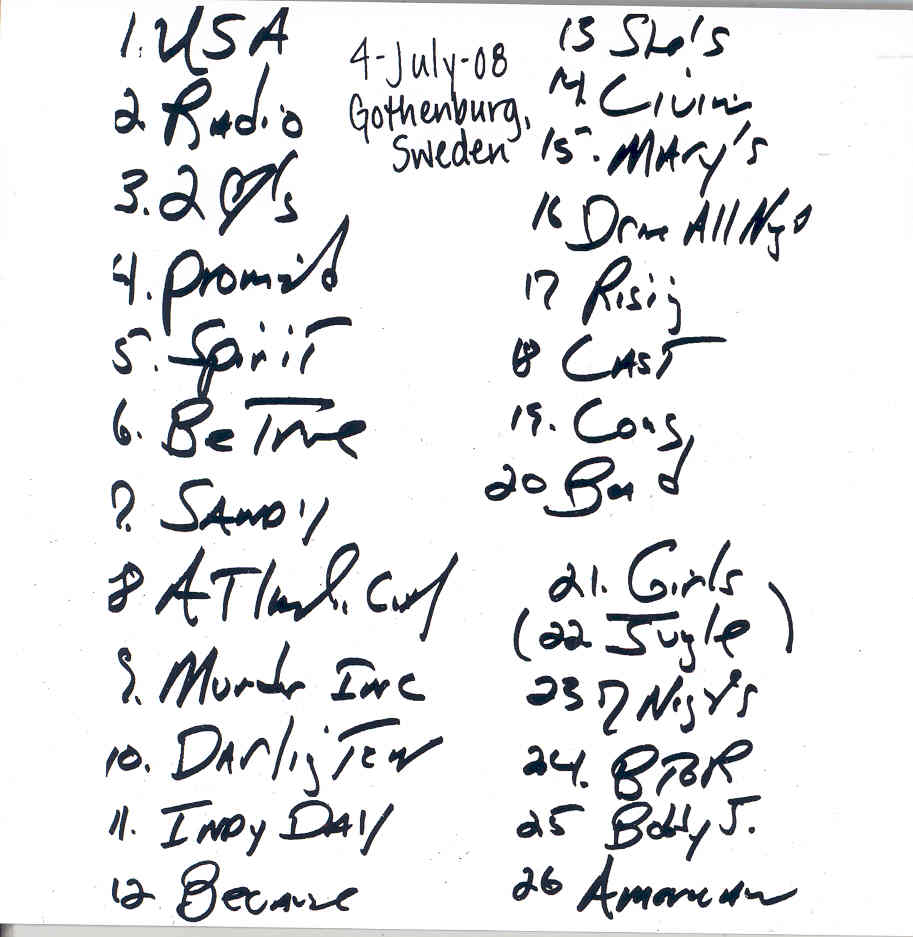 1. USA
2 Radio
3. 2 ♡'s
4. Promisd
5. Spirit
6. Be True
7. SANDY
8 ATlantic City
9. Murder Inc
10. DARlig Ten
11. INDY DAY
12 Because
4-July-08
Gothenburg,
Sweden
13 She's
14. Livin
15. MARY'S
16 Drive All Nig
17 Risig
18 CAST
19. Long
20 Bad
21. Girls
(22 Jugle)
23 7 Nigt's
24. BTOR
25 Bobby J.
26 American